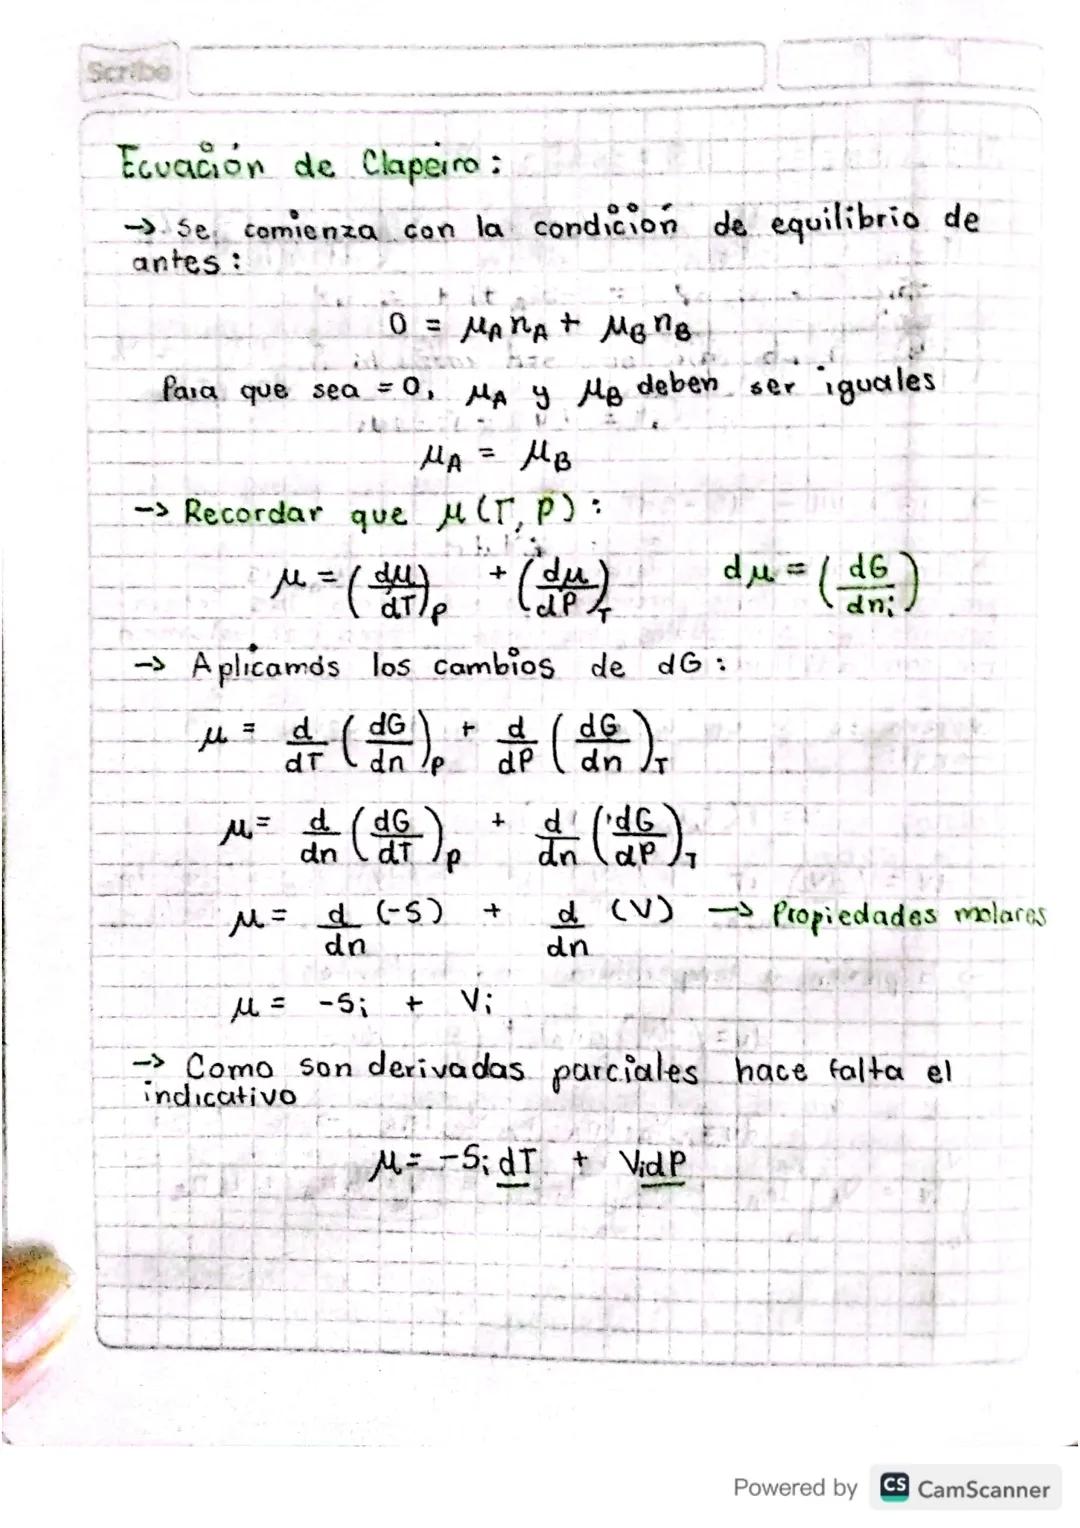 Scribe
Ecuación de Clapeiro:
→ Se comienza con la condición de equilibrio de
antes:
0 = μA nA + μB nB
Para que sea = 0, μA y μB deben ser iguales
μA = μB
→ Recordar que μ(T, P):
μ = (dμ/dT)P + (dμ/dP)T dμ = (dG/dni)
→ Aplicamos los cambios de dG:
μ = d/dT (dG/dn)P + d/dP (dG/dn)T
μ = d/dn (dG/dT)P + d/dn (dG/dP)T
μ = d/dn (-S) + d/dn (V) → Propiedades molares
μ = -Si + Vi
→ Como son derivadas parciales hace falta el
indicativo
μ = -Si dT + Vi dP
Powered by CS CamScanner